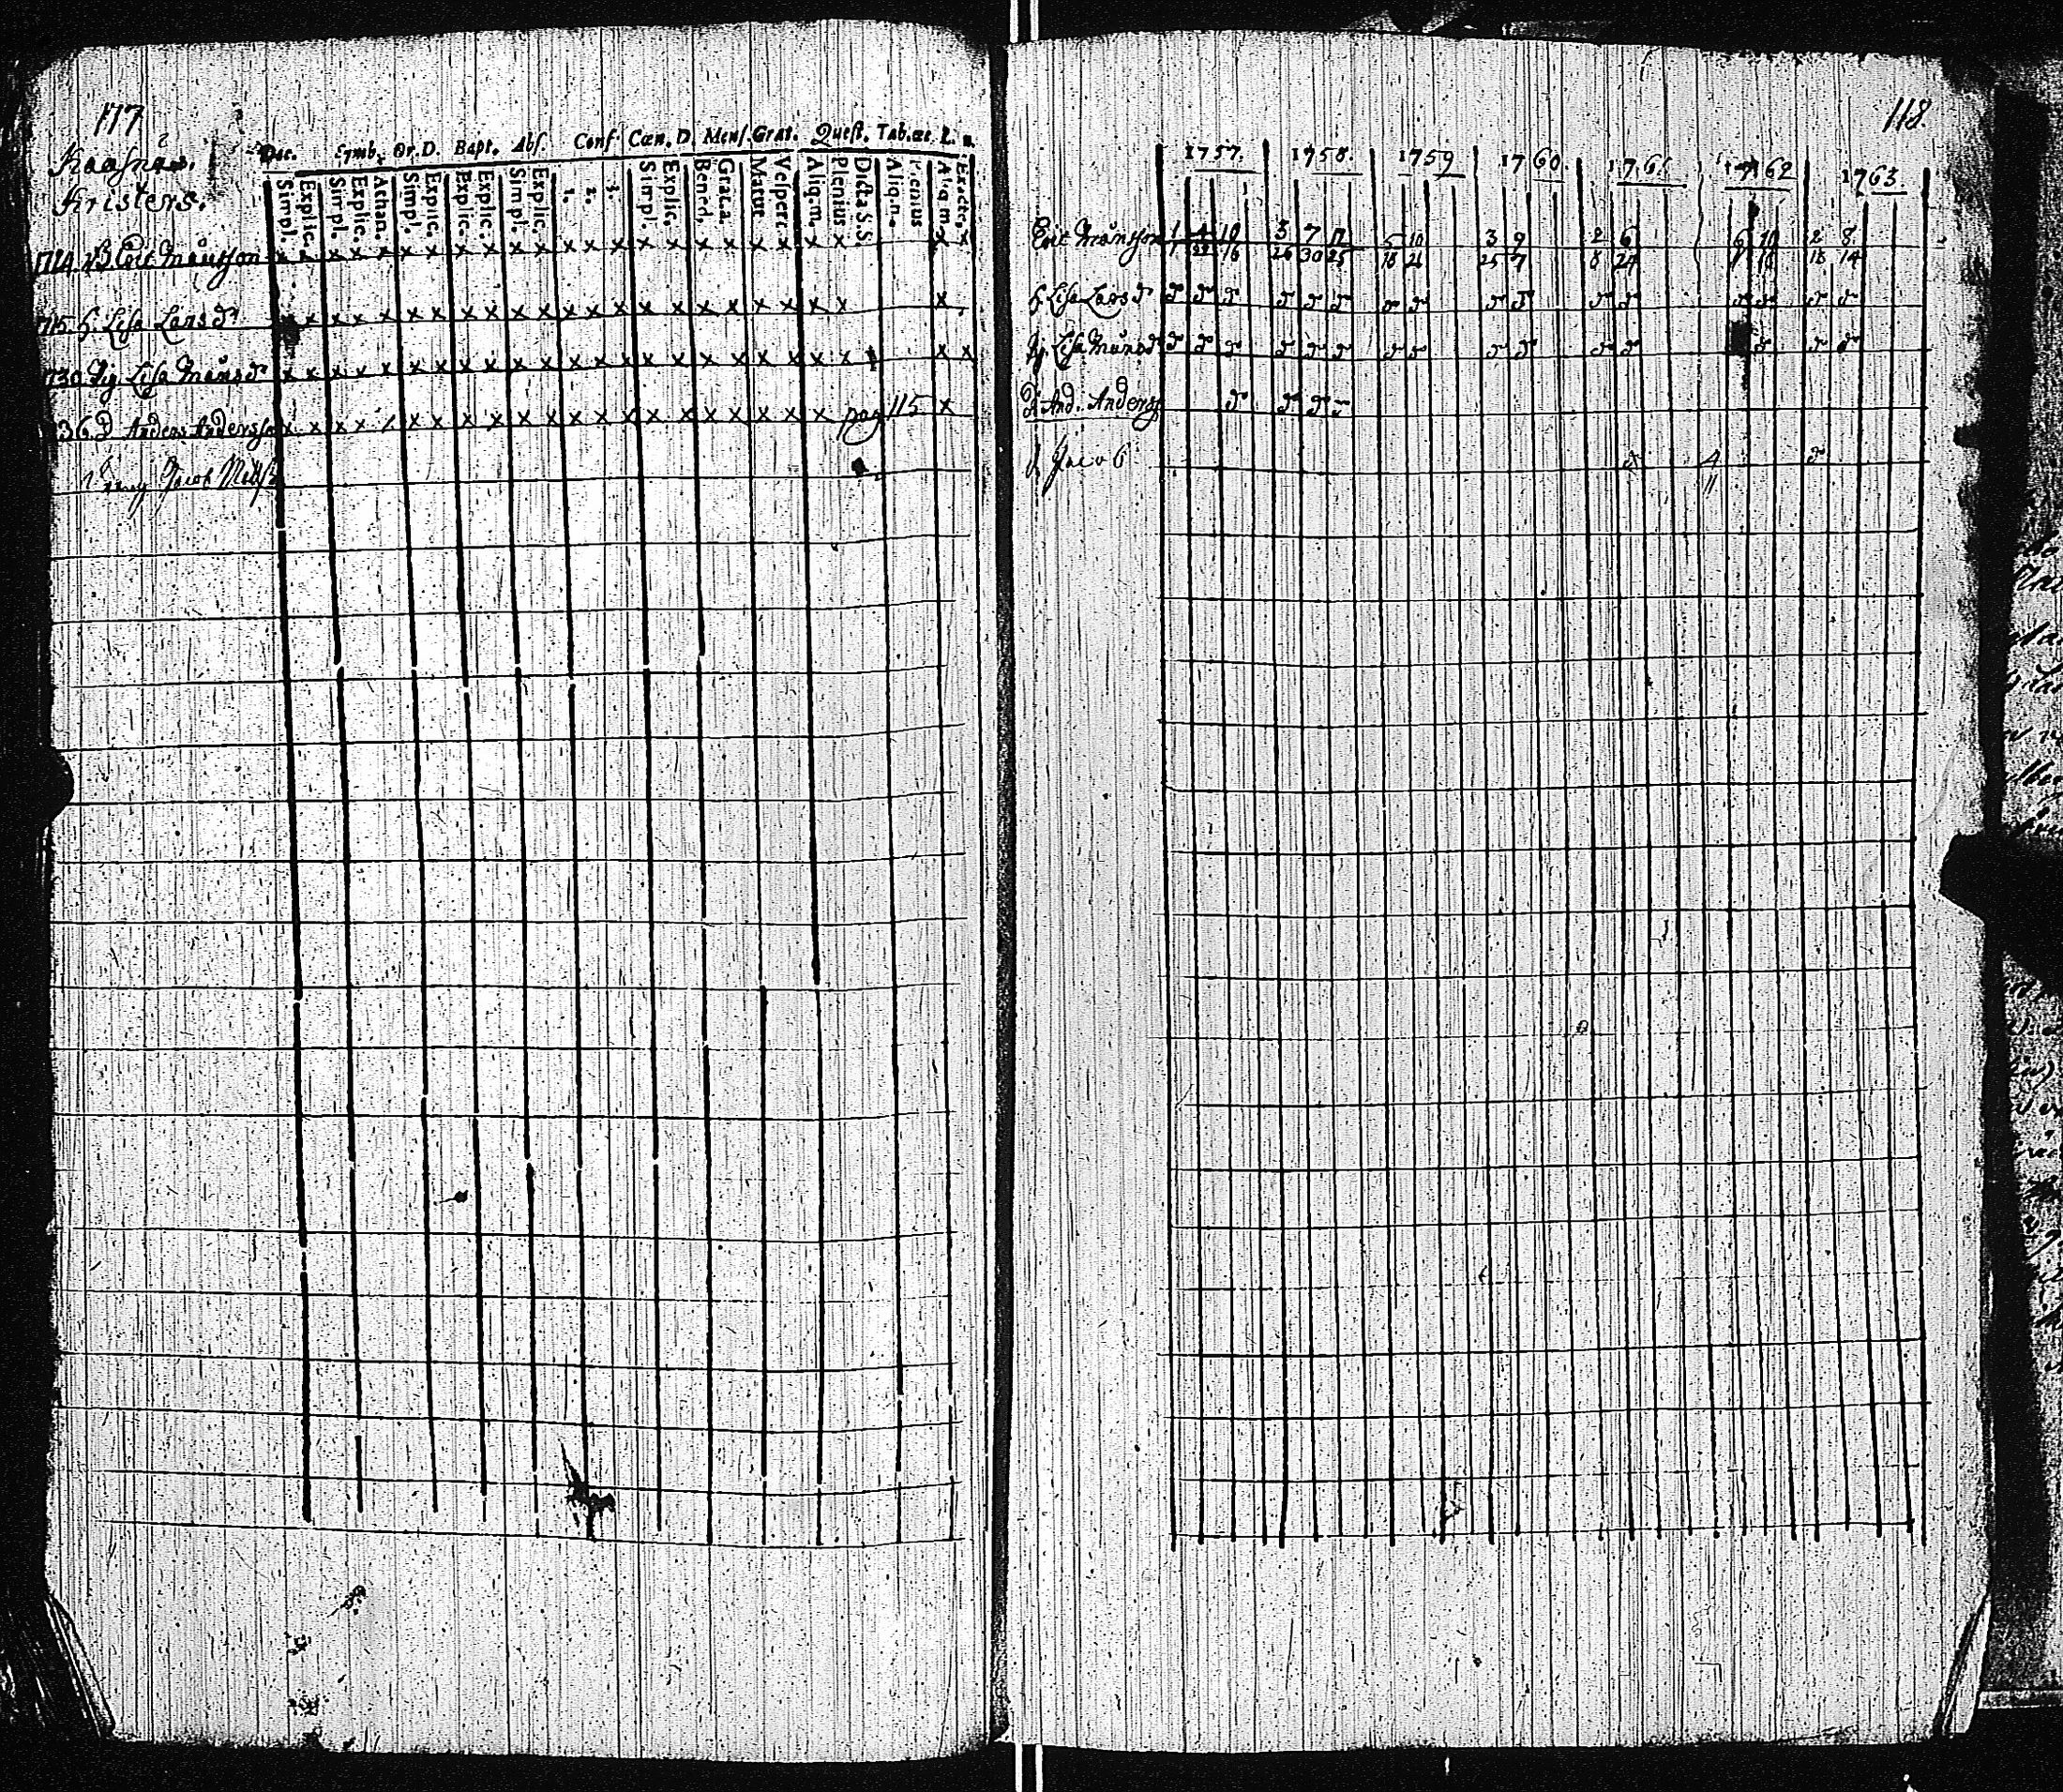 117
Kristers.
Dec. Symb. Or. D. Bapt. Abs. Conf. Cœn. D. Mens. Grat. Quest. Tab. œc. L. n.
Simpl. Explic. Simpl. Explic. Athan. Simpl. Explic. Explic. Explic. Simpl. Explic. 1. 2. 3. Simpl. Explic. Bened. Grat. a. Matur. Vesper. Aliq. m. Plenius Dicta S.S. Aliq. n. Plenius Aliq. m. Exacte.
1714. B. Erit Månsson x x x x x x x x x x x x x x x x x x x x x x x x
1715. h. Lisa Larsdr x x x x x x x x x x x x x x x x x x x x x x x
1730. Pig. Lisa Månsdr x x x x x x x x x x x x x x x x x x x x x x x x
36. D Anders Andersson x x x x x x x x x x x x x x x x x x x x x pag 115 x
Jacob
118.
1757. 1758. 1759 1760. 1761 1762 1763
Erit Månsson 1 4 10 3 7 12 5 10 3 9 2 6 6 10 2 8
1 22 16 26 30 25 18 21 25 7 8 24 18 14
h Lisa Larsdr dr dr dr dr dr dr dr dr dr dr dr dr dr dr dr dr
Pig. Lisa Månsdr dr dr dr dr dr dr dr dr dr dr dr dr dr dr dr
D And. Anderss dr dr dr dr
Jacob dr dr